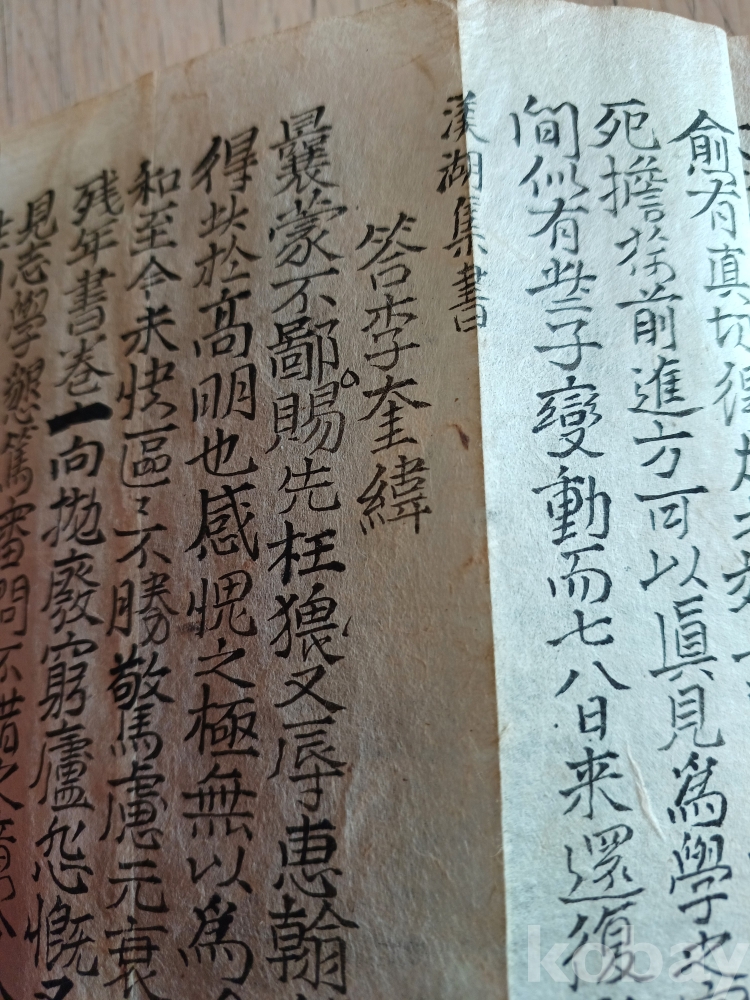 愈有真切得
死擔於前進方可以眞見爲學之
間似有些子變動而七八日来還復
漢湖集書
答李奎緯
曩蒙不鄙賜先枉猥又辱惠翰
得此於高明也感愧之極無以爲
和至今未快區〻不勝驚慮元衰
残年書卷一向抛廢窮廬忽慨又
見志學懇篤審問不措之
kcbay